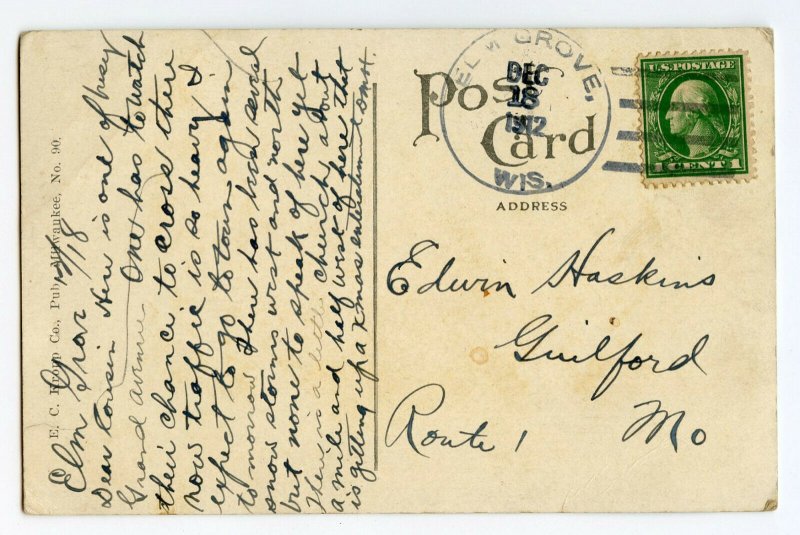 Elm Grove 12/18
Dear Cousin Here is one of busy
Grand avenue One has to watch
their chance to cross there
now traffic is so heavy. I
expect to go to town again
tomorrow There has been several
snow storms west and north
but none to speak of here yet
There is a little church about
a mile and half west of here that
is getting up a Xmas entertainment
E. C. Kropp Co., Pub., Milwaukee, No. 90.
Post
Card
ADDRESS
ELM GROVE,
DEC
18
1912
WIS.
U.S. POSTAGE
1 CENT 1
Edwin Haskins
Guilford
Route 1 Mo